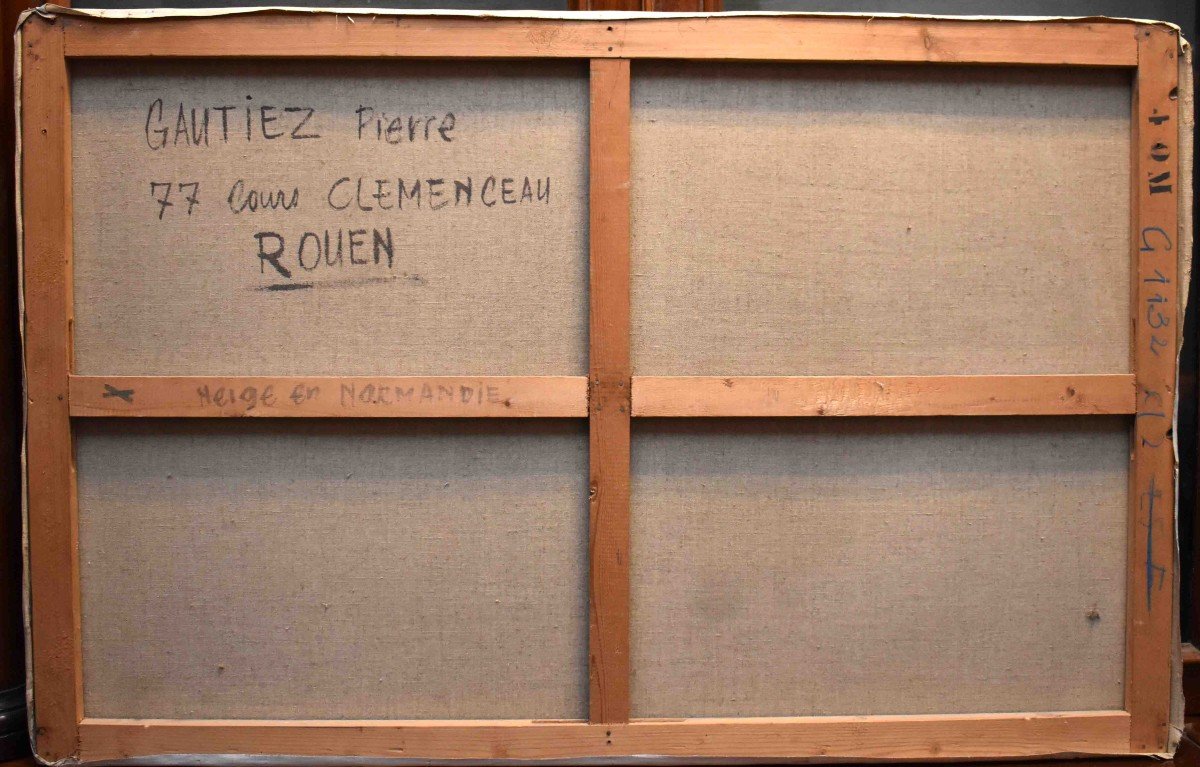 GAUTIEZ Pierre
77 Cours CLEMENCEAU
ROUEN
Neige en NORMANDIE
G 1132